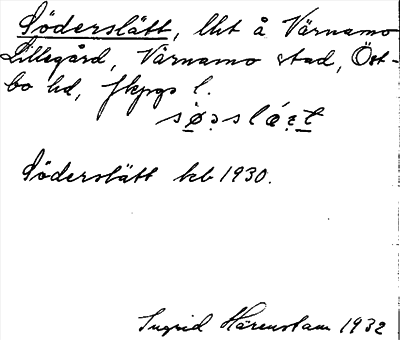 Söderslätt, lht å Värnamo
Lillegård, Värnamo stad, Öst-
bo hd, Jkpgs l.
Söderslätt kb 1930.
Ingrid Härenstam 1932